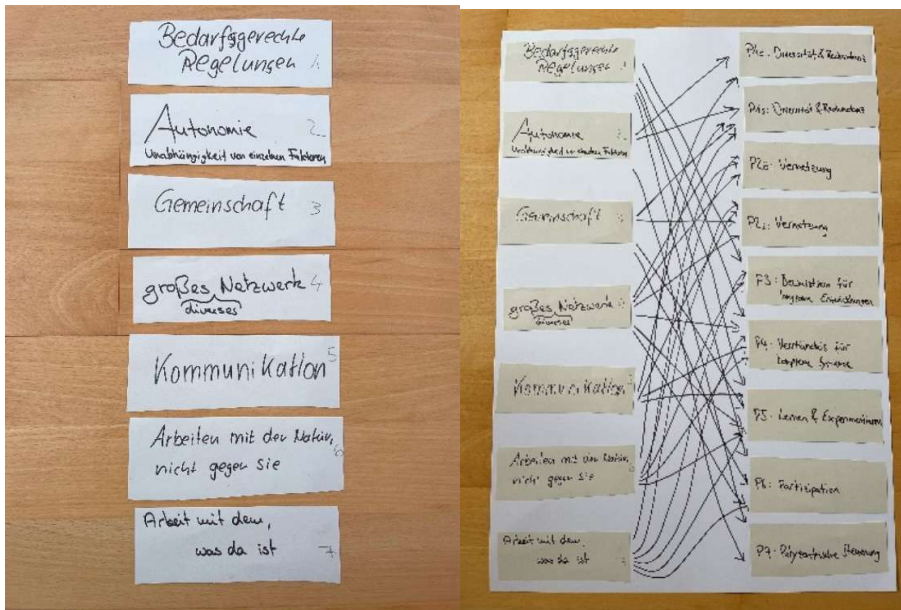 Bedarfsgerechte
Regelungen 1
Autonomie 2
Unabhängigkeit von einzelnen Faktoren
Gemeinschaft 3
großes Netzwerk 4
diverses
Kommunikation 5
Arbeiten mit der Natur, 6
nicht gegen sie
Arbeit mit dem,
was da ist 7
Bedarfsgerechte
Regelungen
Autonomie 2
Unabhängigkeit von einzelnen Faktoren
Gemeinschaft 3
großes Netzwerk
diverses
Kommunikation
Arbeiten mit der Natur,
nicht gegen sie
Arbeit mit dem,
was da ist 7
Diversität & Redundanz
Diversität & Redundanz
Vernetzung
Vernetzung
P3: für
P4: Verständnis für
komplexe Systeme
P5: Lernen & Experimentieren
P6: Partizipation
P7: Polyzentrische Steuerung